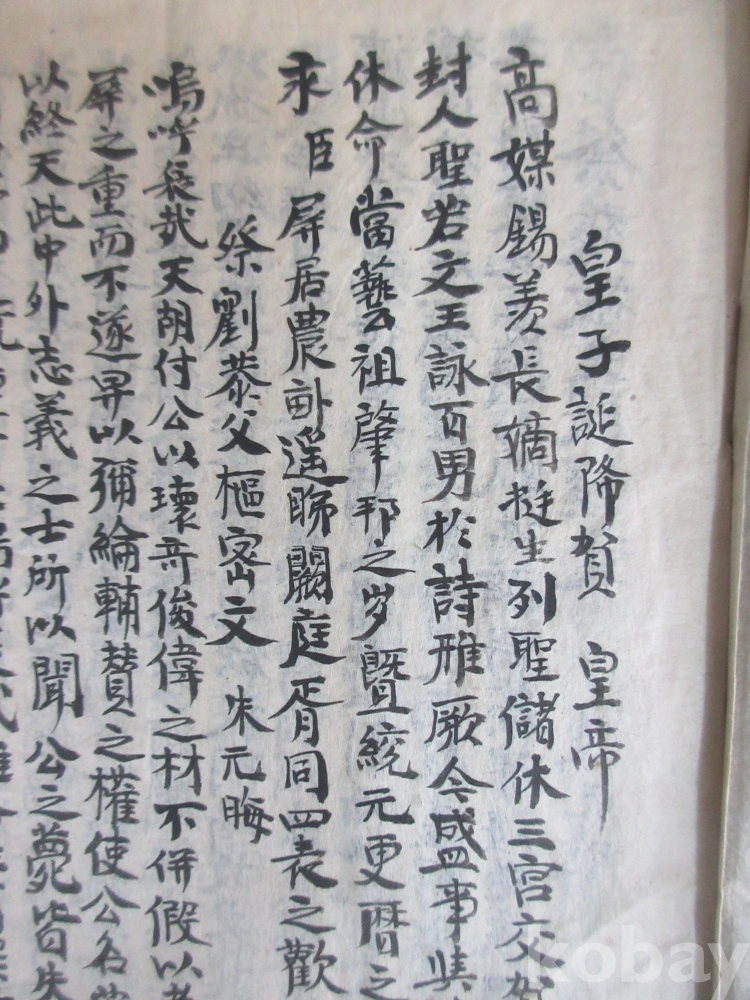 皇子誕降賀 皇帝
高媒錫羨長嫡挺生列聖儲休三宮交
封人聖若文王詠百男於詩雅厥今盛事
休命當藝祖肇邦之岁曁統元更曆之
求 臣 屏居農畝遥睇闕庭胥同四表之歡
祭劉恭父樞密文 朱元晦
嗚呼哀哉天胡付公以瓌奇俊偉之材不併假以
屏之重而不遂畀以彌綸輔賛之權使公名
以終天此中外志義之士所以聞公之薨皆失
kobay